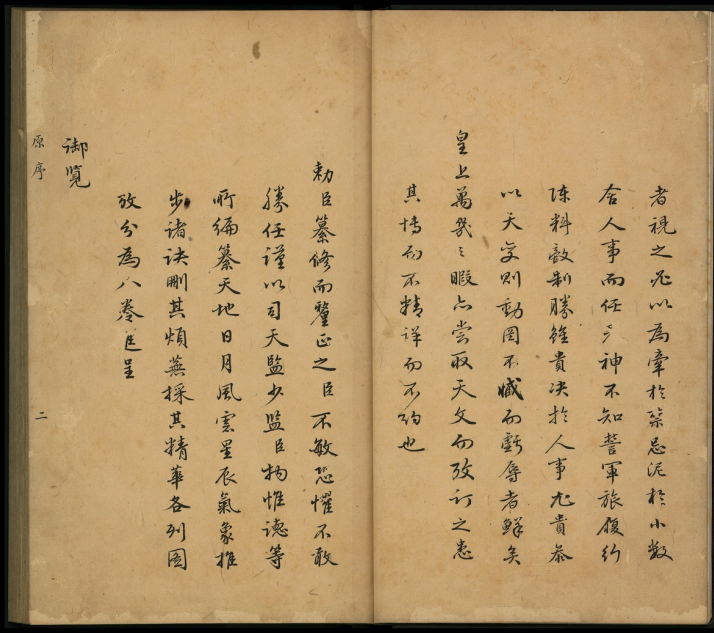 者視之尨以為牽於禁忌泥於小數
舍人事而任神不知誓軍旅履行
陳料敵制勝雖貴决於人事尤貴叅
以天变則動罔不臧而虧辱者鮮矣
皇上萬幾之暇亦嘗取天文而攷订之患
其博而不精详而不約也
勅臣纂修而釐正之臣不敏恐懼不敢
勝任谨以司天監少監臣杨惟德等
所编纂天地日月風雲星辰氣象推
步诸诀刪其煩蕪採其精華各列圖
攷分為八卷進呈
御覽
原序
二